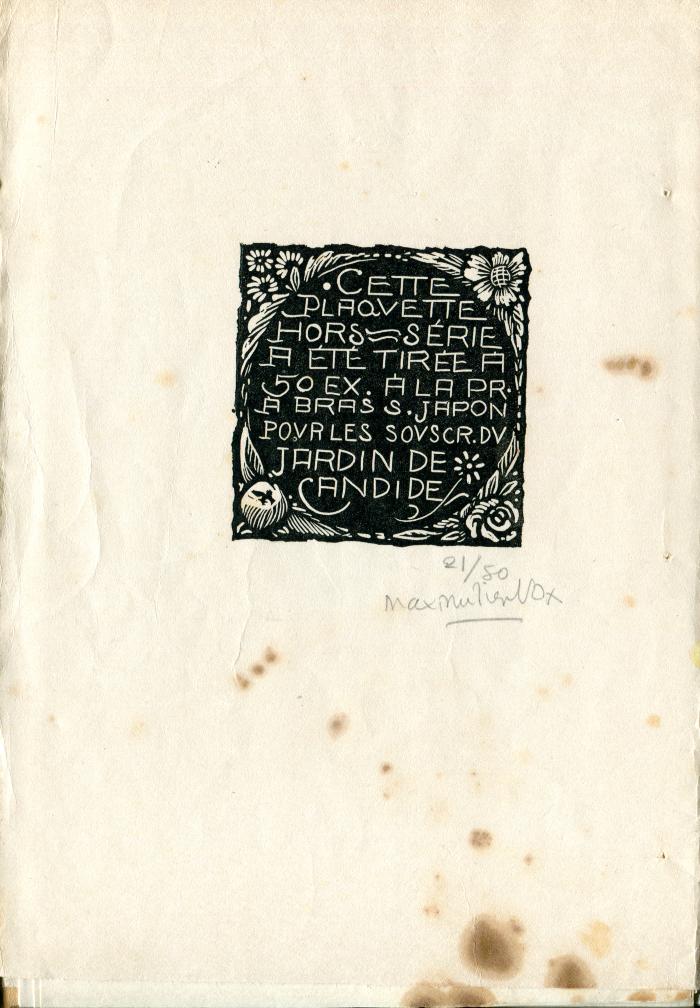 •CETTE
PLAQVETTE
HORS~SÉRIE
A ÉTÉ TIRÉE A
50 EX. A LA PR.
A BRAS S. JAPON
POVR LES SOVSCR. DV
JARDIN DE
CANDIDE
21/50
Maximilien Vox